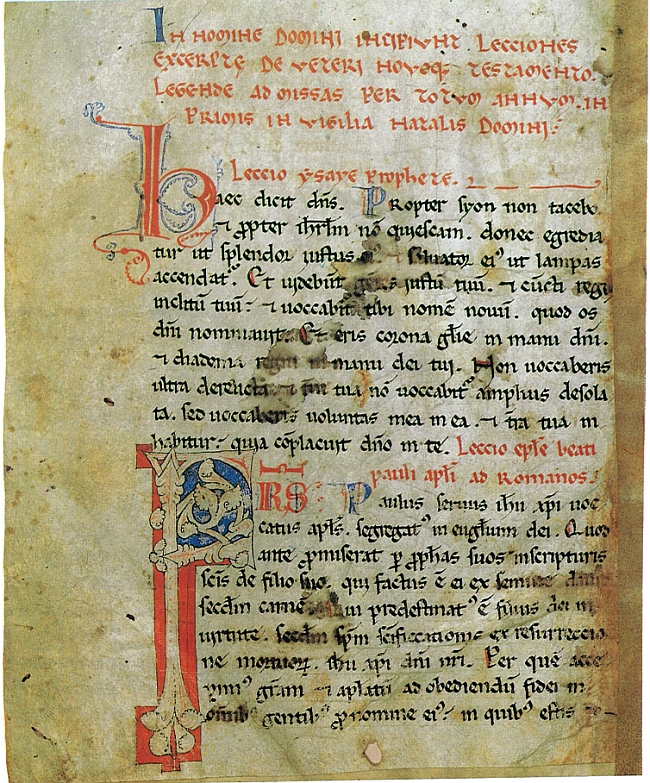 In nomine Domini incipiunt lecciones
excerpte de veteri novoq; testamento.
Legende ad missas per totum annum. in
primis in vigilia natalis Domini:
Leccio ysaye prophete.
Haec dicit dñs. Propter syon non tacebo
⁊ ꝓpter ihrl̃m nõ quiescam. donec egredia
tur ut splendor iustus ⁊ saluator eiꝰ ut lampas
accendat᷑. Et uidebunt gentes iustũ tuũ. ⁊ cũcti reges
inclitũ tuũ: ⁊ uoccabit᷑ tibi nomẽ nouũ. quod os
dñi nominauit. Et eris corona gl̃ie in manu dñi.
⁊ diadema regni in manu dei tui. Non uoccaberis
ultra derelicta ⁊ t̃ra tua nõ uoccabit᷑ amplius desola
ta. sed uoccaberis uoluntas mea in ea. ⁊ t̃ra tua in
habitur: quia cõplacuit dño in te. Leccio epl̃e beati
pauli apl̃i ad Romanos.
FRS Paulus seruus ihu xp̃i uoc
catus apl̃s. segregatꝰ in eugl̃ium dei. Quod
ante ꝓmiserat ꝑ ꝓphas suos in scripturis
sc̃is de filio suo. qui factus ẽ ei ex semine dauid
secd̃m carnẽ. qui predestinatꝰ ẽ filius dei in
uirtute. secd̃m sp̃m sc̃ificcationis ex resurreccio
ne mortuoꝝ. ihu xp̃i dñi nr̃i. Per quẽ acce
pimꝰ gr̃am ⁊ apl̃atũ ad obediendũ fidei in
omĩbꝰ gentibꝰ ꝓ nomine eiꝰ: in quibꝰ estis